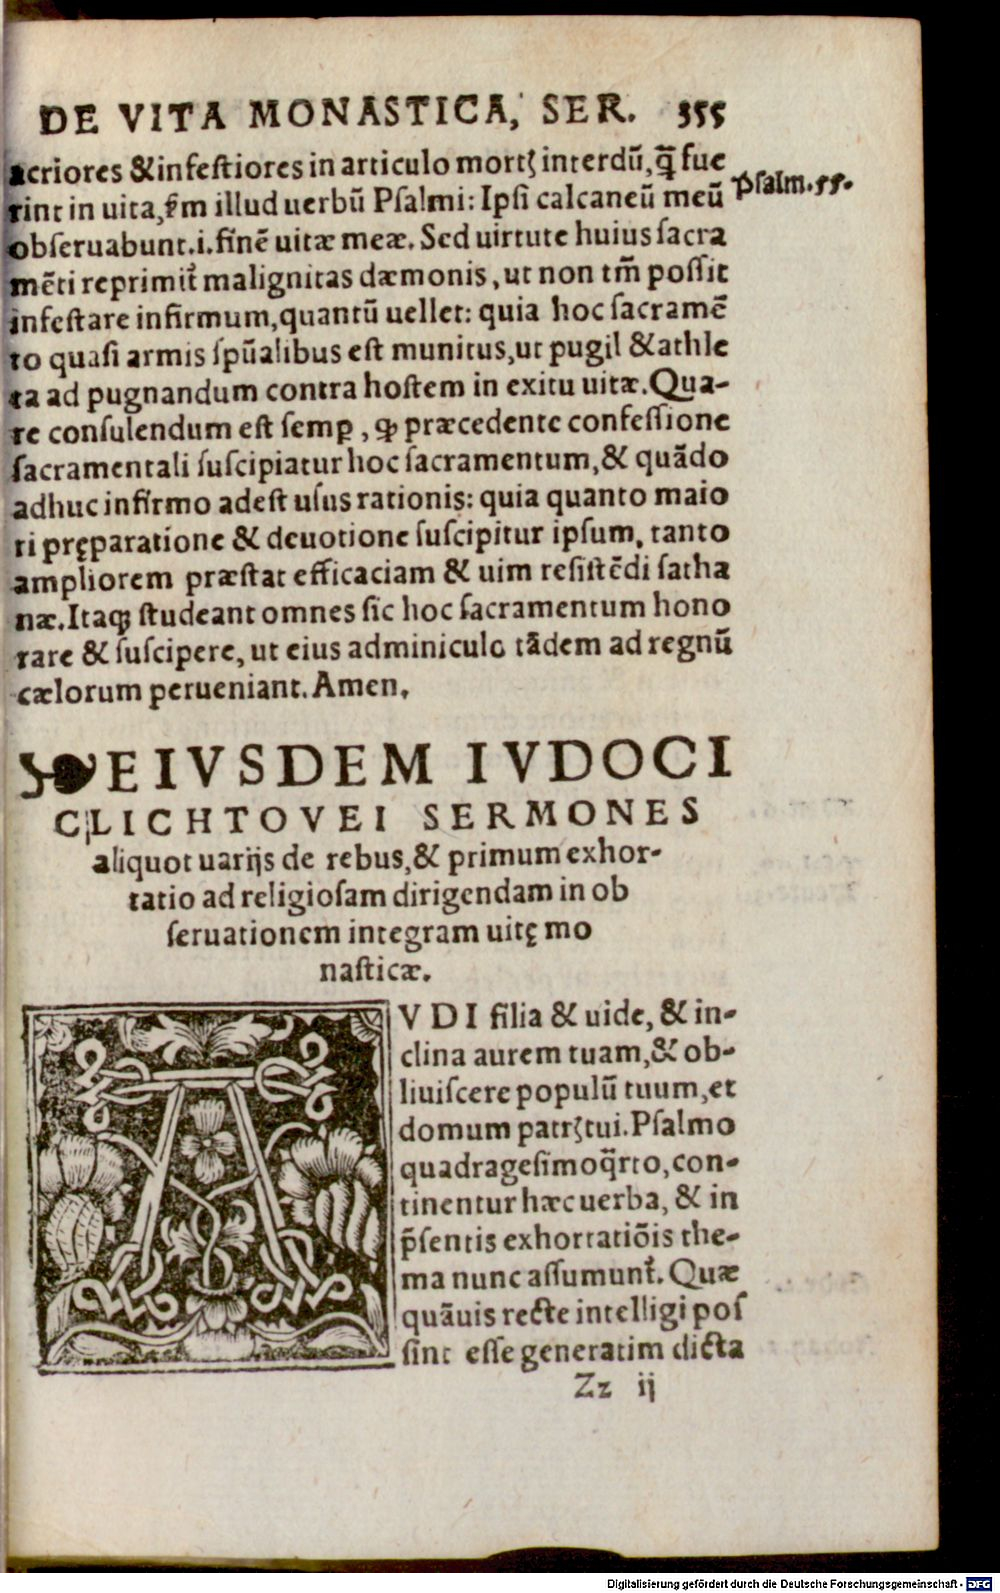 DE VITA MONASTICA, SER. 355
acriores & infestiores in articulo mortꝭ interdũ, q̃ fue
rint in uita, ẜm illud uerbũ Psalmi: Ipsi calcaneũ meũ
Psalm. 55.
obseruabunt. i. finẽ uitæ meæ. Sed uirtute huius sacra
mẽti reprimit᷑ malignitas dæmonis, ut non tm̃ possit
infestare infirmum, quantũ uellet: quia hoc sacramẽ
to quasi armis spũalibus est munitus, ut pugil & athle
ta ad pugnandum contra hostem in exitu uitæ. Qua-
re consulendum est semꝑ, ꝙ præcedente confessione
sacramentali suscipiatur hoc sacramentum, & quãdo
adhuc infirmo adest usus rationis: quia quanto maio
ri pręparatione & deuotione suscipitur ipsum, tanto
ampliorem præstat efficaciam & uim resistẽdi satha
næ. Itaqꝫ studeant omnes sic hoc sacramentum hono
rare & suscipere, ut eius adminiculo tãdem ad regnũ
cælorum perueniant. Amen.
❧ EIVSDEM IVDOCI
CLICHTOVEI SERMONES
aliquot uarijs de rebus, & primum exhor-
tatio ad religiosam dirigendam in ob
seruationem integram uitę mo
nasticæ.
AVDI filia & uide, & in-
clina aurem tuam, & ob-
liuiscere populũ tuum, et
domum patrꝭ tui. Psalmo
quadragesimoq̃rto, con-
tinentur hæc uerba, & in
p̃sentis exhortatiõis the-
ma nunc assumunt᷑. Quæ
quãuis recte intelligi pos
sint esse generatim dicta
Zz ij
Digitalisierung gefördert durch die Deutsche Forschungsgemeinschaft - DFG